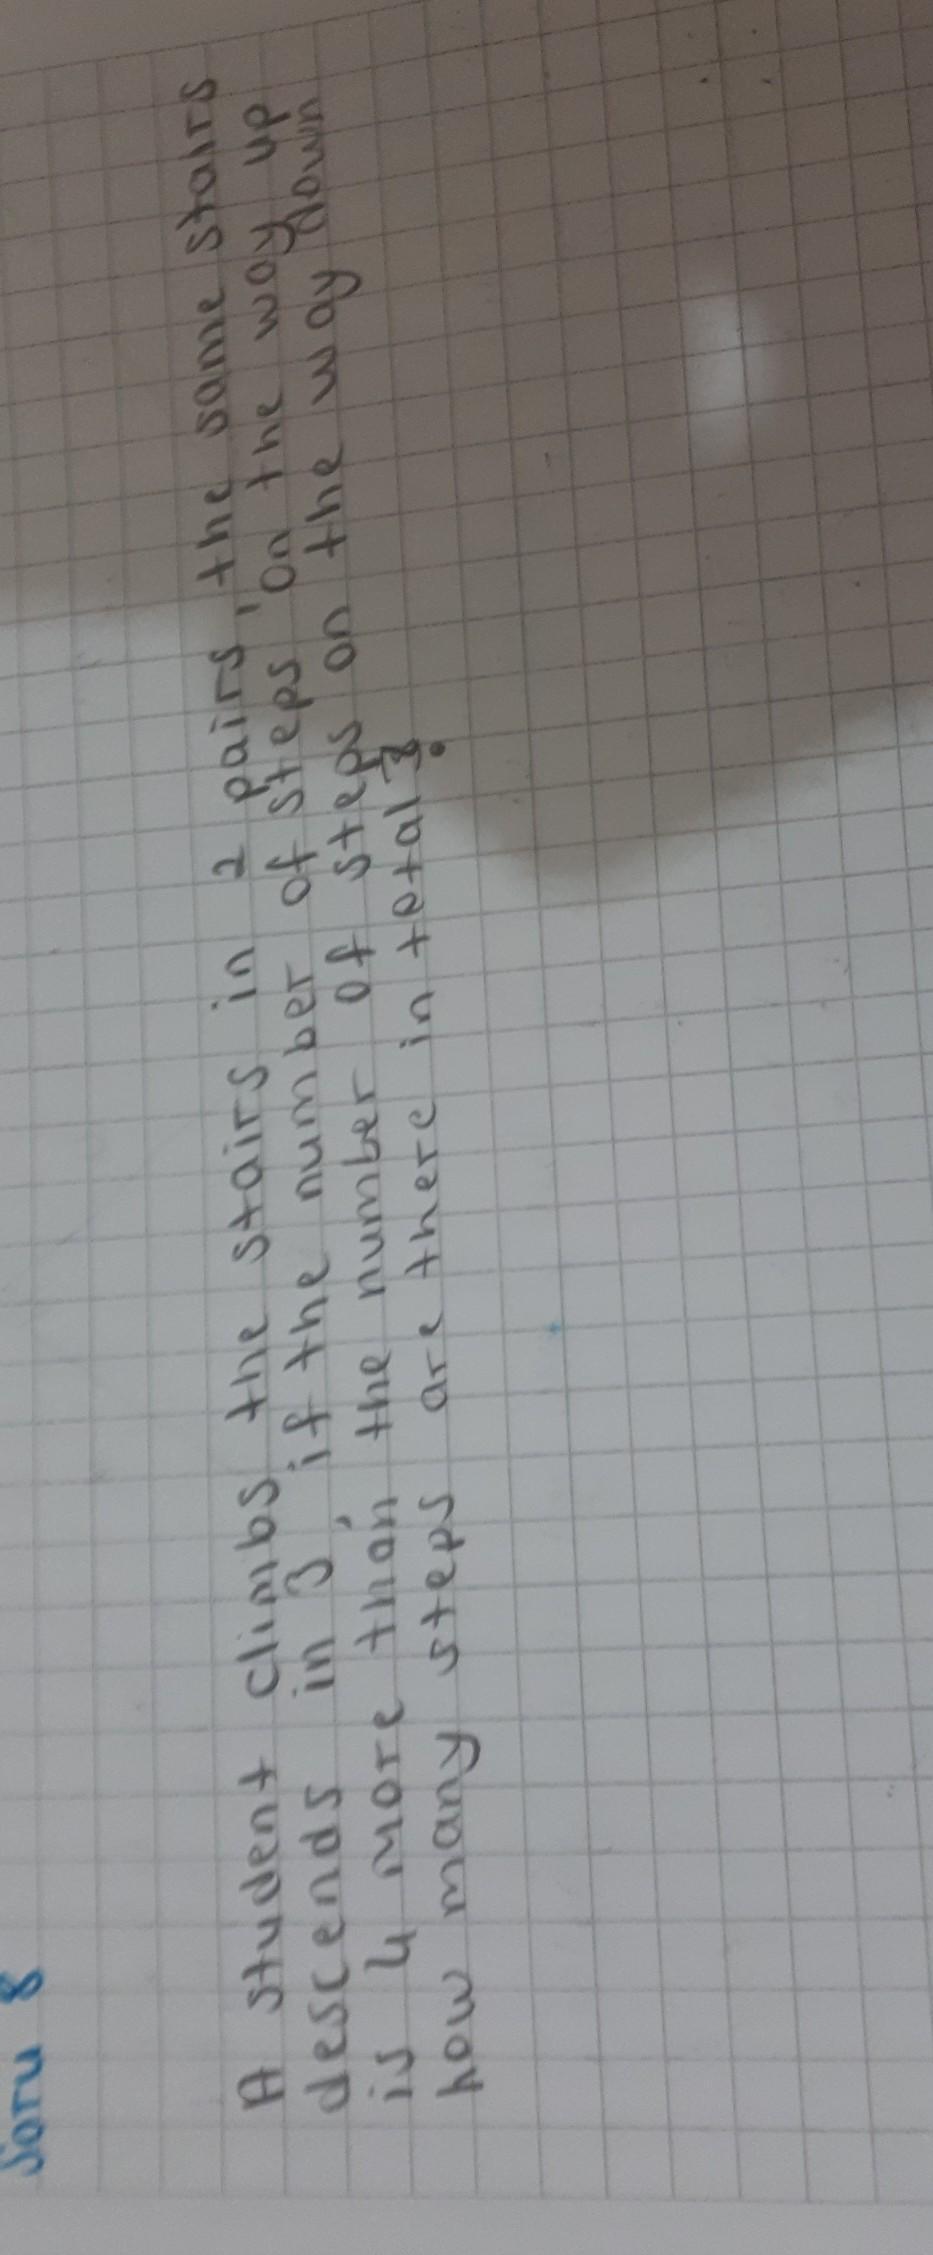 Soru 8
A student climbs the stairs in 2 pairs, the same stairs
descends in 3, if the number of steps on the way up
is 4 more than the number of steps on the way down
how many steps are there in total?